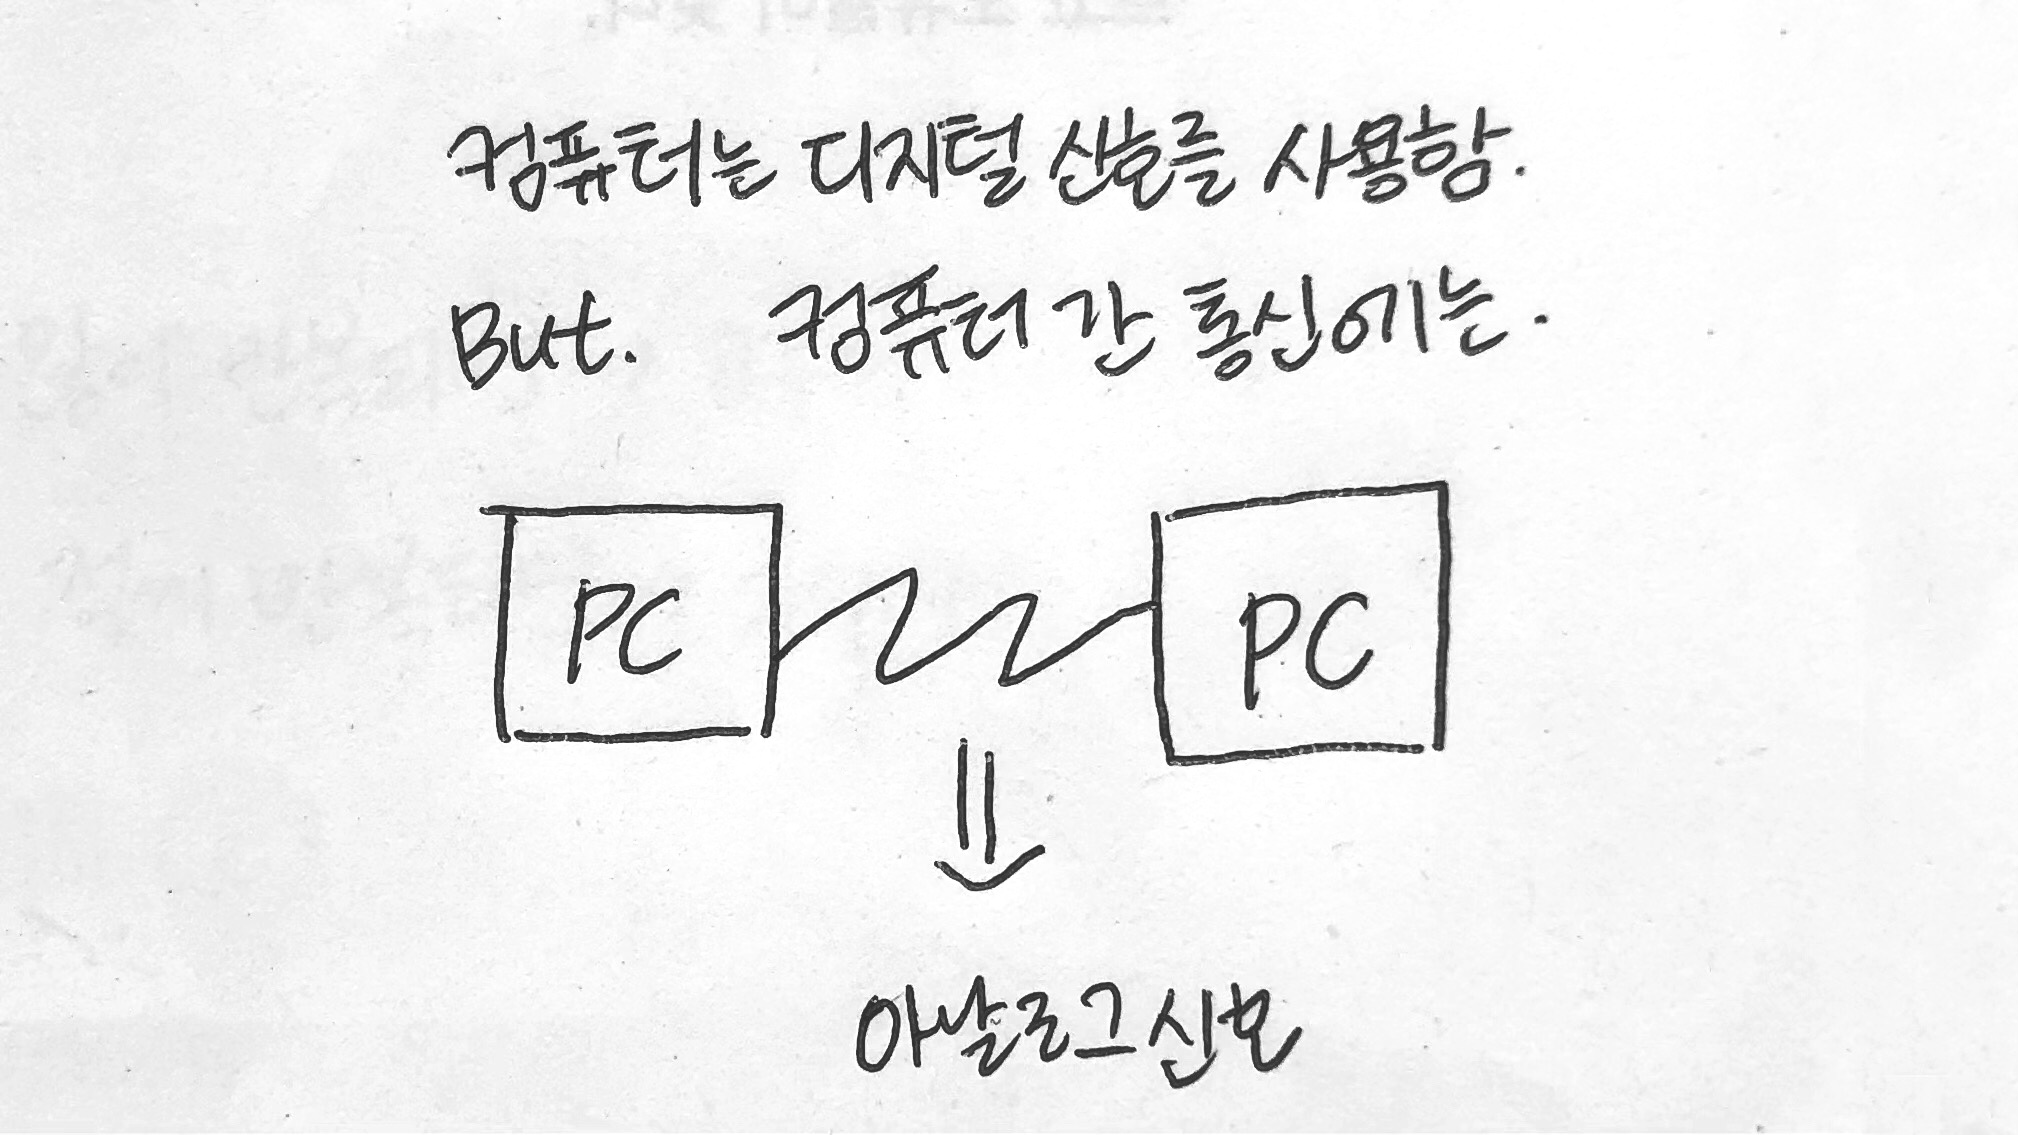 컴퓨터는 디지털 신호를 사용함.
But. 컴퓨터 간 통신에는.
PC PC
아날로그 신호